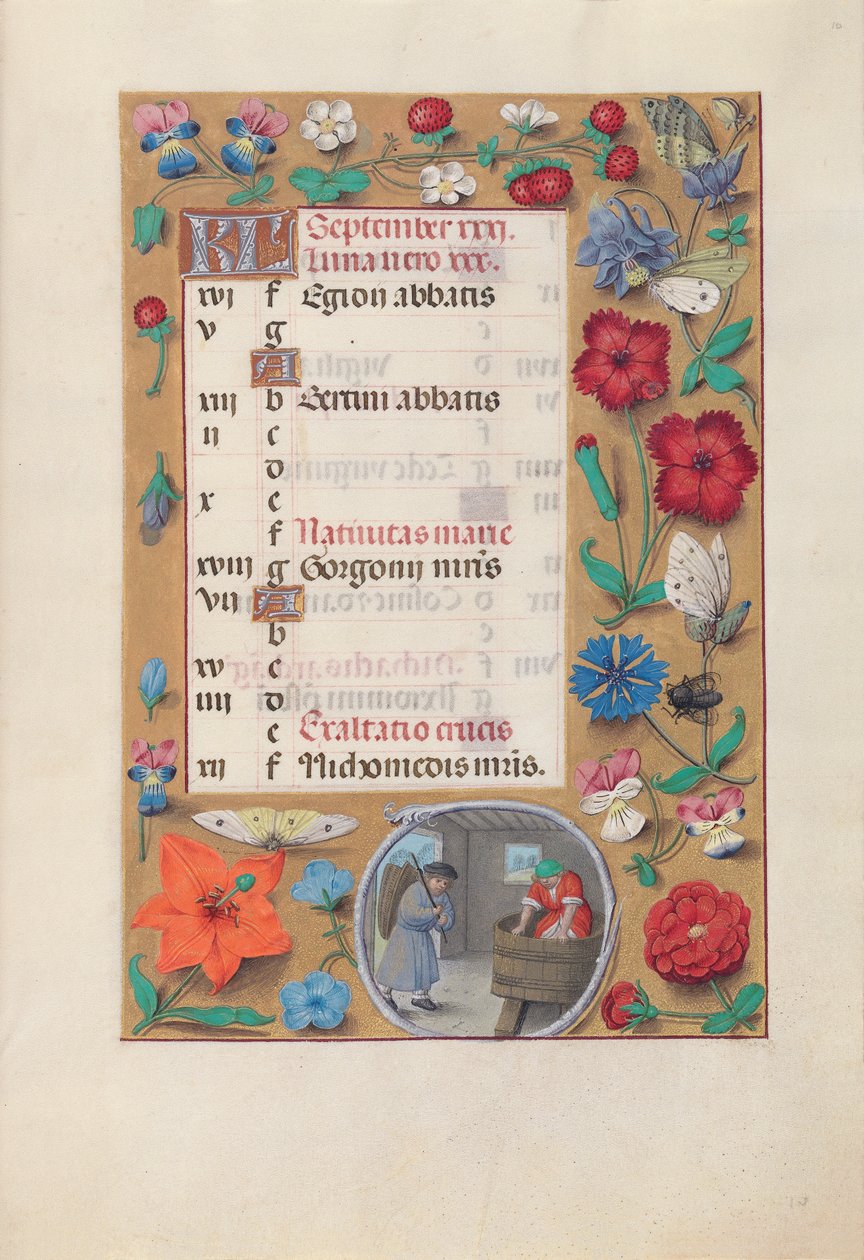 KL September xxxj.
Luna vero xxx.
xvj f Egidij abbatis
v g
A
xiij b Bertini abbatis
ij c
d
x e
f Nativitas marie
xviij g Gorgonij mr̄is
vij A
b
xv c
iiij d
e Exaltatio crucis
xij f Nichomedis mr̄is.